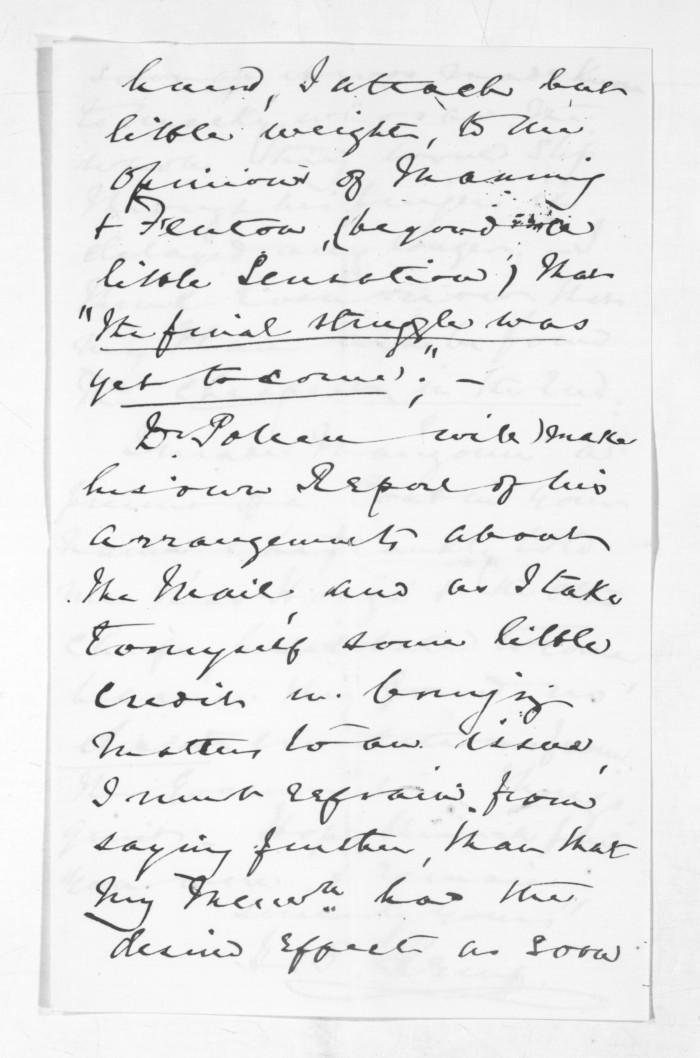 hand, I attach but
little weight, to the
opinion of Manning
& Fenton, (beyond a
little sensation) that
"the final struggle was
yet to come"; —
Dr. Pollen will make
his own Report of his
arrangements about
the Mail, and as I take
to myself some little
credit in bringing
matters to an issue,
I must refrain from
saying further, than that
my Memdm had the
desired effect as soon